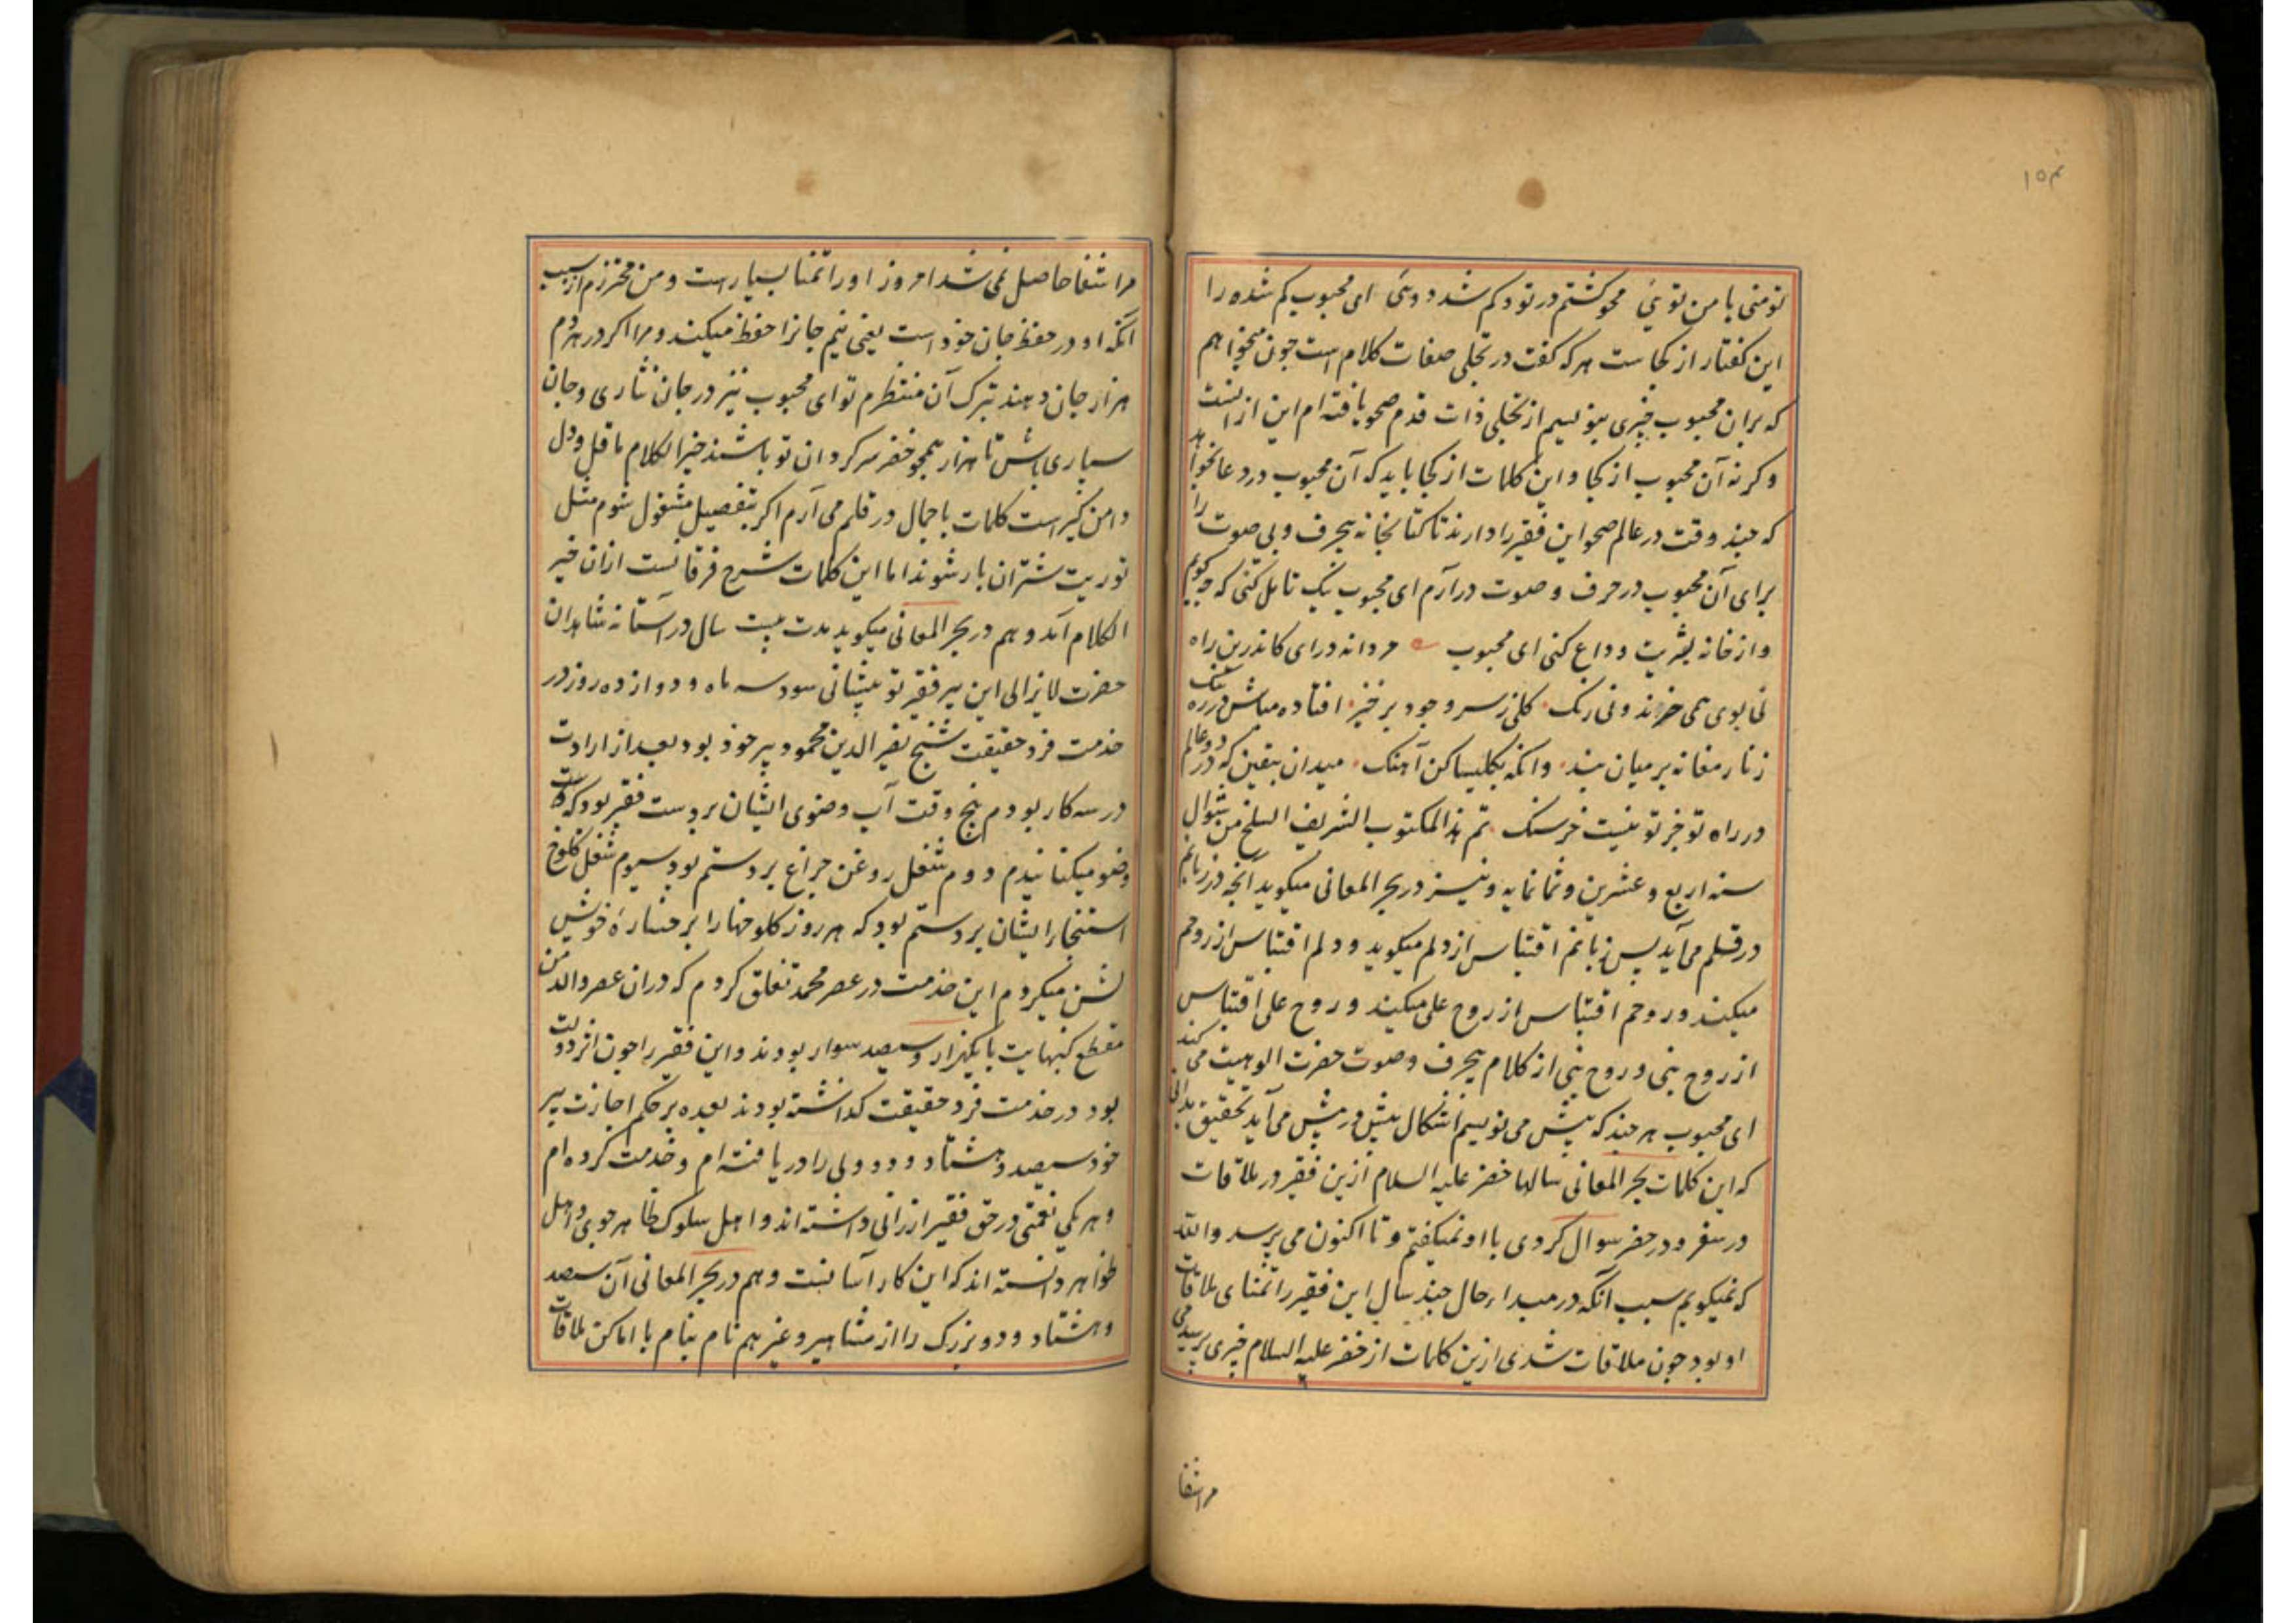 ۱۵۴
تو منی یا من توئی محو کشتم در تو و کم شد دوئی ای محبوب کم شده را
این کفتار از کجا ست هر که کفت در تجلی صفات کلام است چون میخواهم
که بران محبوب چیزی بنویسم از تجلی ذات قدم صحو یافته ام این از انست
وکرنه آن محبوب از کجا و این کلمات از کجا باید که آن محبوب در دعا بخواهد
که چند وقت در عالم صحو این فقیر را دارند تا کتابخانه بیحرف و بی صوت را
برای آن محبوب در حرف و صوت درآرم ای محبوب نیک تامل کنی که چه میکویم
و از خانه بشریت وداع کنی ای محبوب مردانه درای کاندرین راه
نی بوی همی خرند و نی رنک کلی ز سر وجود برخیز افتاده مباش در ره تنک
زنار مغانه بر میان بند وانکه بکلیسا کن آهنک میدان بیقین که در دو عالم
در راه تو جز تو نیست خرسنک تم هذا المکتوب الشریف السلخ من شوال
سنه اربع و عشرین و ثمانمایه و نیز در بحر المعانی میکوید آنچه در زبانم
در قلم می آید پس زبانم اقتباس از دلم میکوید و دلم اقتباس از روحم
میکند و روحم اقتباس از روح علی میکند و روح علی اقتباس
از روح نبی و روح نبی از کلام بیحرف و صوت حضرت الوهیت می کند
ای محبوب هر چند که پیش می نویسم اشکال بیش در پیش می آید تحقیق بدانی
که این کلمات بحر المعانی سالها خضر علیه السلام ازین فقیر در ملاقات
در سفر و در حضر سوال کردی با او نمیکفتم و تا اکنون می پرسد والله
که نمیکویم سبب آنکه در مبدا حال چند سال این فقیر را تمنای ملاقات
او بود چون ملاقات شدی ازین کلمات از خضر علیه السلام چیزی پرسیدمی
مرا شفا
مرا شفا حاصل نمی شد امروز او را تمنا بسیار است و من محترزم از سبب
آنکه او در حفظ جان خود است یعنی نیم جانرا حفظ میکند و مرا اکر در هر دم
هزار جان دهند بترک آن منتظرم تو ای محبوب نیز در جان نثاری و جان
سپاری باش تا هزار همچو خضر سرکردان تو باشند خیر الکلام ما قل و دل
دامن کیر است کلمات باجمال در قلم می آرم اکر بتفصیل مشغول شوم مثل
توریت شتران بار شوند اما این کلمات شرح فرقانست ازان خیر
الکلام آمد و هم در بحر المعانی میکوید مدت بیست سال در آستانه شاهدان
حضرت لایزالی این پیر فقیر تو پیشانی سود سه ماه و دوازده روز در
خدمت فرد حقیقت شیخ نصیر الدین محمود پیر خود بود بعد از ارادت
در سه کار بودم پنج وقت آب وضوی ایشان بر دست فقیر بود که
وضو میکنانیدم دوم شغل روغن چراغ بر دستم بود سیوم شغل کلوخ
استنجا را ایشان بر دستم بود که هر روز کلوخها را بر خساره خویش
لشن میکردم این خدمت در عصر محمد تغلق کردم که دران عصر والد من
مقطع کنبهایت با یکهزار و سیصد سوار بودند و این فقیر را چون اثر دولت
بود در خدمت فرد حقیقت کذاشته بودند بعده بر حکم اجازت پیر
خود سیصد و هشتاد و دو ولی را دریافته ام و خدمت کرده ام
و هر یکی نعمتی در حق فقیر ارزانی داشته اند و اهل سلوک ظاهر جوی و اهل
ظواهر دانسته اند که این کار آسانست و هم در بحر المعانی آن سیصد
و هشتاد و دو بزرک را از مشاهیر و غیر هم نام بنام با اماکن ملاقات